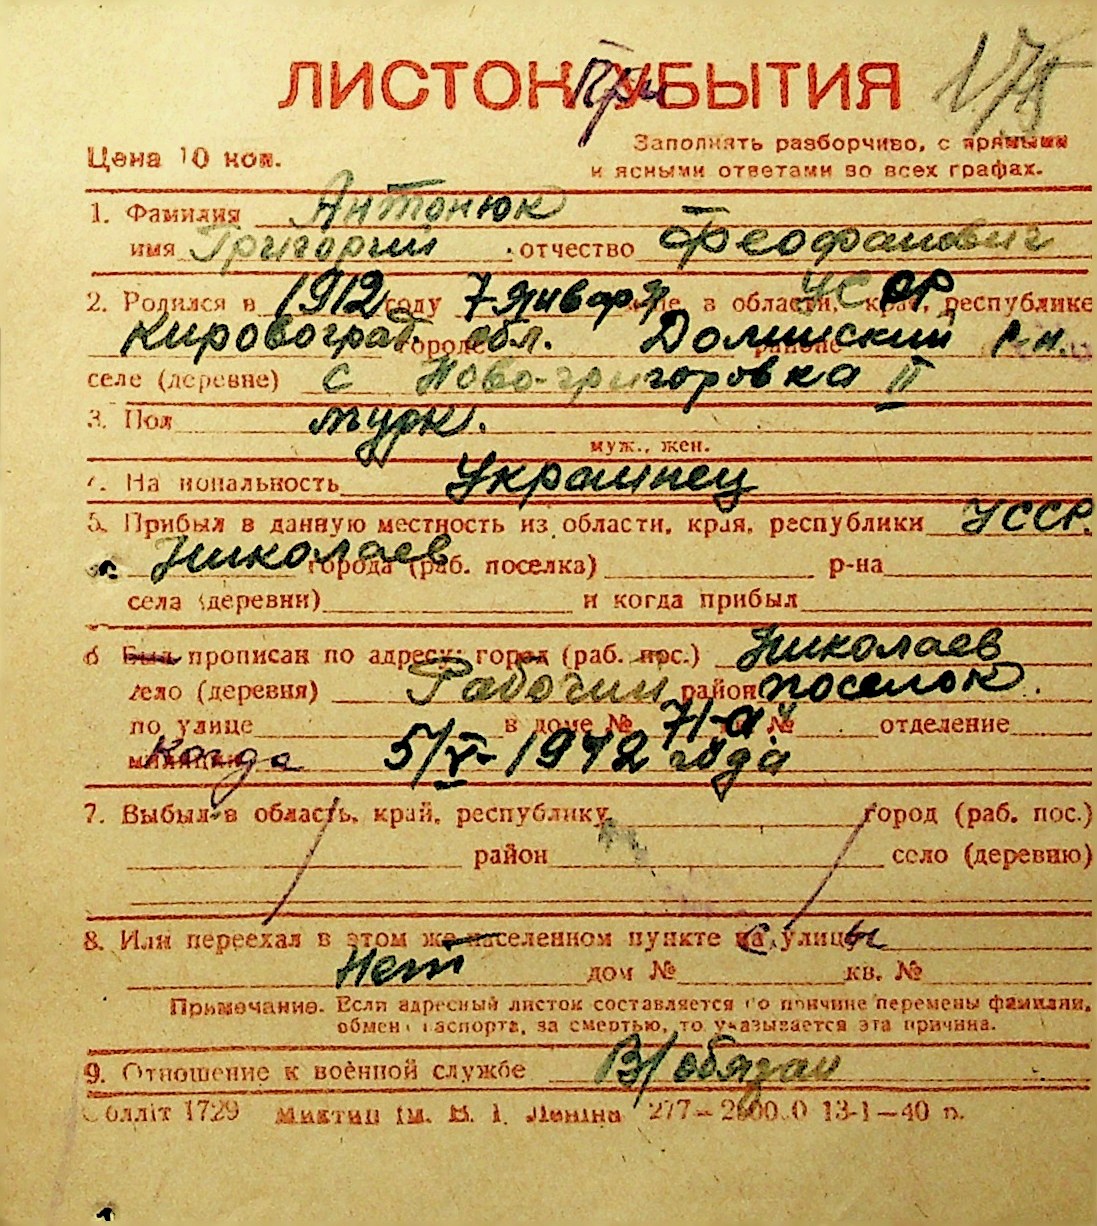 ЛИСТОК При УБЫТИЯ 175
Цена 10 коп.
Заполнять разборчиво, с прямыми
и ясными ответами во всех графах.
1. Фамилия Антонюк
имя Григорий отчество Феофанович
2. Родился в 1912 году 7 января м-це, в области, крае, республике УСРР
Кировоград. городе обл. Долинский районе р-н.
селе (деревне) с Ново-григоровка II
3. Пол муж.
муж., жен.
4. Национальность Украинец
5. Прибыл в данную местность из области, края, республики УССР.
г. Николаев города (раб. поселка) р-на
села (деревни) и когда прибыл
6 Был прописан по адресу: город (раб. пос.) Николаев
село (деревня) Рабочий район поселок.
по улице в доме № 71-а кв. № отделение
милиции Когда 5/V-1942 года
7. Выбыл в область, край, республику город (раб. пос.)
район село (деревню)
8. Или переехал в этом же населенном пункте с улицы
Нет дом № кв. №
Примечание. Если адресный листок составляется по причине перемены фамилии,
обмена паспорта, за смертью, то указывается эта причина.
9. Отношение к военной службе В/обязан
Облліт 1729 ім. В. І. Леніна 277— 13-1—40 р.